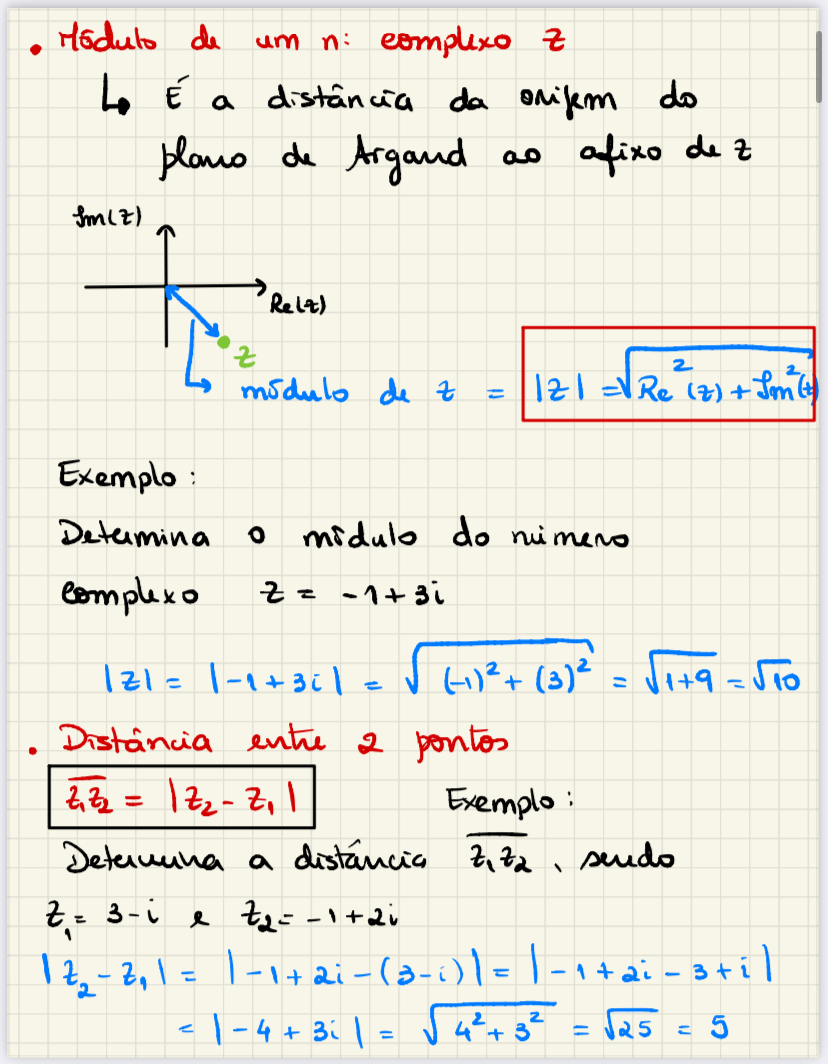 • Módulo de um n: complexo z
↳ É a distância da origem do
plano de Argand ao afixo de z
Im(z)
Re(z)
z
módulo de z = |z| = √(Re²(z) + Im²(z))
Exemplo:
Determina o módulo do número
complexo z = -1+3i
|z| = |-1+3i| = √((-1)² + (3)²) = √(1+9) = √10
• Distância entre 2 pontos
z̅₁z̅₂ = |z₂ - z₁|
Exemplo:
Determina a distância z̅₁z̅₂, sendo
z₁ = 3-i e z₂ = -1+2i
|z₂ - z₁| = |-1+2i-(3-i)| = |-1+2i-3+i|
= |-4+3i| = √(4²+3²) = √25 = 5